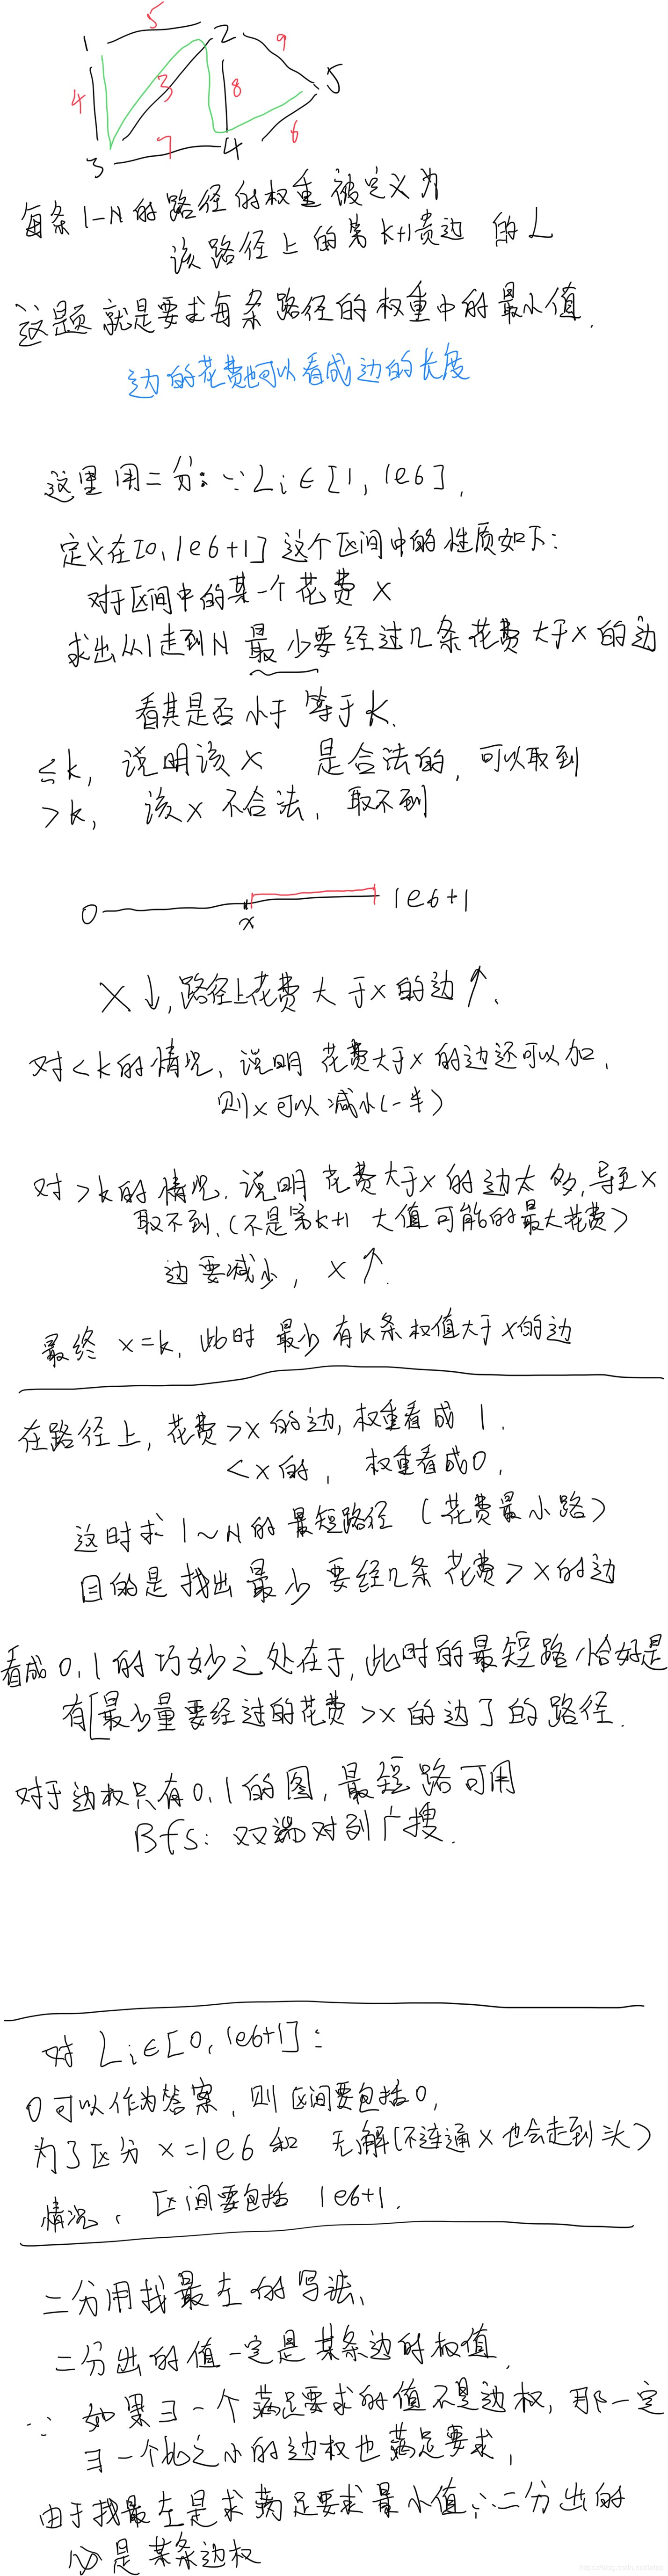 5
1 2 9
4 3 8 5
7 6
3 4
每条1-N的路径的权重被定义为
该路径上的第k+1贵边的L
这题就是要求每条路径的权重中的最小值.
边的花费也可以看成边的长度
这里用二分:∵Li∈[1,1e6],
定义在[0,1e6+1]这个区间中的性质如下:
对于区间中的某一个花费x
求出从1走到N最少要经过几条花费大于x的边
看其是否小于等于k.
≤k, 说明该x 是合法的,可以取到
>k, 该x不合法,取不到
0 x 1e6+1
x↓,路径上花费大于x的边↑.
对<k的情况,说明花费大于x的边还可以加,
则x可以减小(一半)
对>k的情况,说明花费大于x的边太多,导至x
取不到.(不是第k+1大值可能的最大花费)
边要减少, x↑.
最终x=k,此时最少有k条权值大于x的边
在路径上,花费>x的边,权重看成1.
<x的, 权重看成0,
这时求1~N的最短路径(花费最小路)
目的是找出最少要经几条花费>x的边
看成0,1的巧妙之处在于,此时的最短路恰好是
有[最少量要经过的花费>x的边]的路径.
对于边权只有0,1的图,最短路可用
Bfs:双端对列广搜.
对Li∈[0,1e6+1]:
0可以作为答案,则区间要包括0,
为了区分x=1e6和 无解(不连通x也会走到头)
情况,区间要包括1e6+1.
二分用找最左的写法、
二分出的值一定是某条边的权值.
∵如果∃一个满足要求的值不是边权,那一定
∃一个比之小的边权也满足要求,
由于找最左是求满足要求最小值∴二分出的
必是某条边权